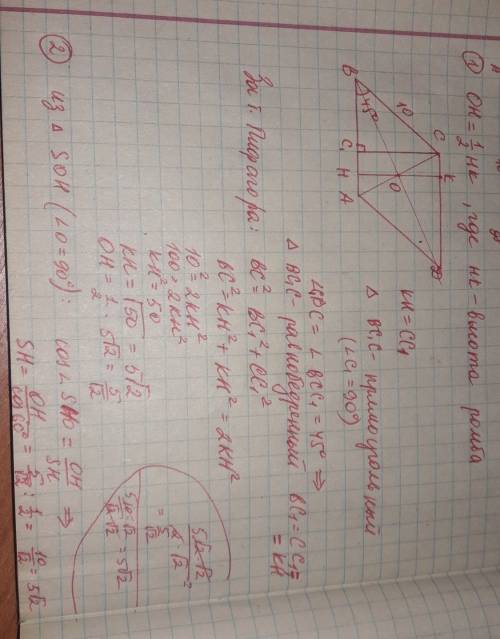 ① OH = 1/2 HK, где HK - высота ромба
B 45° 10 C K
C₁ H A O D
KH = CC₁
Δ BC₁C - прямоугольный
(∠C₁ = 90°)
∠C₁BC = ∠BCC₁ = 45° ⇒
Δ BC₁C - равнобедренный BC₁ = CC₁ =
= KH
По т. Пифагора: BC² = BC₁² + CC₁²
BC² = KH² + KH² = 2KH²
10² = 2KH²
100 = 2KH²
KH² = 50
KH = √50 = 5√2
OH = 1/2 · 5√2 = 5/√2
② Из Δ SOH (∠O = 90°): cos∠SHO = OH/SH ⇒
SH = OH/cos60° = 5/√2 : 1/2 = 10/√2 = 5√2